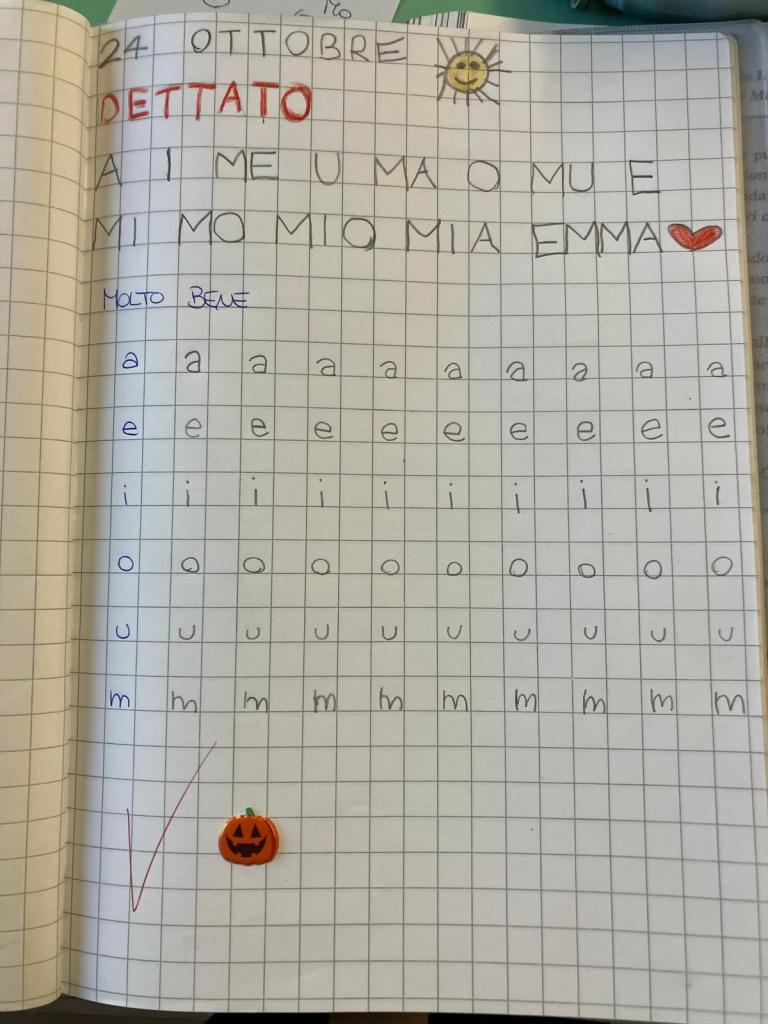 24 OTTOBRE
DETTATO
A I ME U MA O MU E
MI MO MIO MIA EMMA
MOLTO BENE
a a a a a a a a a a
e e e e e e e e e e
i i i i i i i i i i
o o o o o o o o o o
u u u u u u u u u u
m m m m m m m m m m